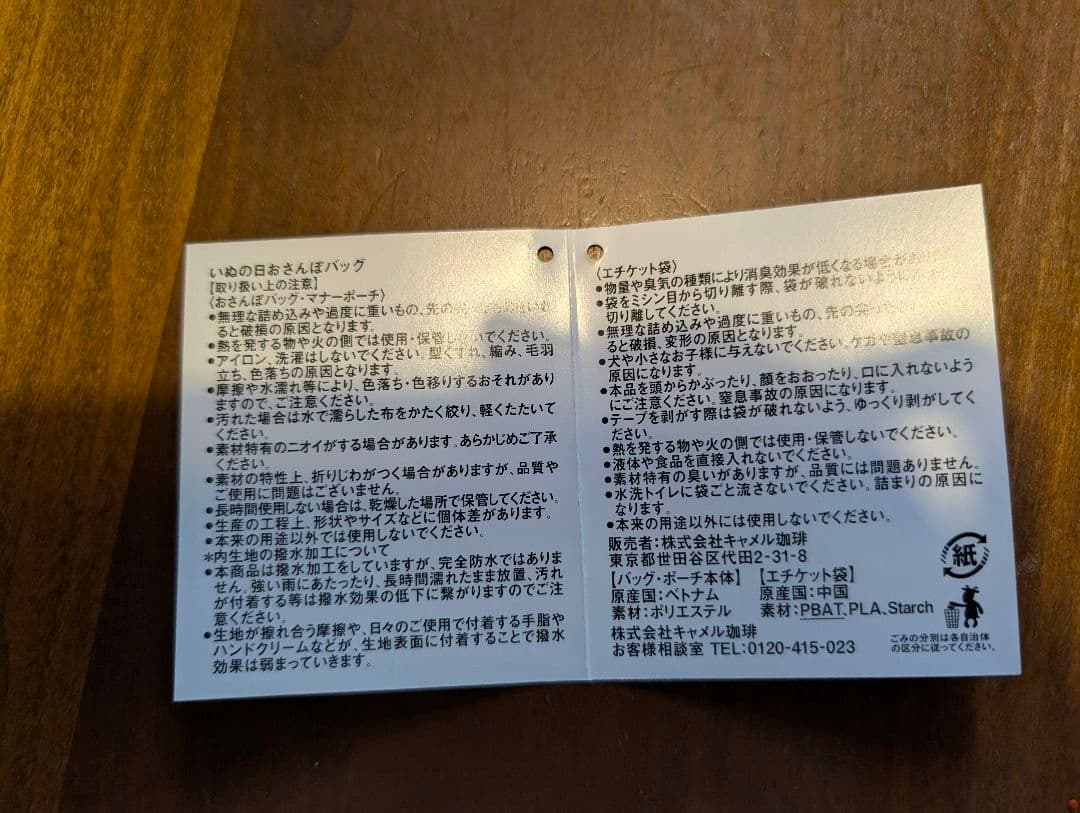 いぬの日おさんぽバッグ
【取り扱い上の注意】
〈おさんぽバッグ・マナーポーチ〉
●無理な詰め込みや過度に重いもの、先の尖
ると破損の原因となります。
●熱を発する物や火の側では使用・保管しないでください。
●アイロン、洗濯はしないでください。型くずれ、縮み、毛羽
立ち、色落ちの原因となります。
●摩擦や水濡れ等により、色落ち・色移りするおそれがあり
ますので、ご注意ください。
●汚れた場合は水で濡らした布をかたく絞り、軽くたたいて
ください。
●素材特有のニオイがする場合があります。あらかじめご了承
ください。
●素材の特性上、折りじわがつく場合がありますが、品質や
ご使用に問題はございません。
●長時間使用しない場合は、乾燥した場所で保管してください。
●生産の工程上、形状やサイズなどに個体差があります。
●本来の用途以外では使用しないでください。
＊内生地の撥水加工について
●本商品は撥水加工をしていますが、完全防水ではありま
せん。強い雨にあたったり、長時間濡れたまま放置、汚れ
が付着する等は撥水効果の低下に繋がりますのでご注
意ください。
●生地が擦れ合う摩擦や、日々のご使用で付着する手脂や
ハンドクリームなどが、生地表面に付着することで撥水
効果は弱まっていきます。
〈エチケット袋〉
●物量や臭気の種類により消臭効果が低くなる場合があり
●袋をミシン目から切り離す際、袋が破れないように
切り離してください。
●無理な詰め込みや過度に重いもの、先の尖っ
ると破損、変形の原因となります。
●犬や小さなお子様に与えないでください。ケガや窒息事故の
原因になります。
●本品を頭からかぶったり、顔をおおったり、口に入れないよう
にご注意ください。窒息事故の原因になります。
●テープを剥がす際は袋が破れないよう、ゆっくり剥がしてく
ださい。
●熱を発する物や火の側では使用・保管しないでください。
●液体や食品を直接入れないでください。
●素材特有の臭いがありますが、品質には問題ありません。
●水洗トイレに袋ごと流さないでください。詰まりの原因に
なります。
●本来の用途以外には使用しないでください。
販売者：株式会社キャメル珈琲
東京都世田谷区代田2-31-8
【バッグ・ポーチ本体】 【エチケット袋】
原産国：ベトナム 原産国：中国
素材：ポリエステル 素材：PBAT,PLA,Starch
株式会社キャメル珈琲
お客様相談室 TEL：0120-415-023
紙
ごみの分別は各自治体
の区分に従ってください。